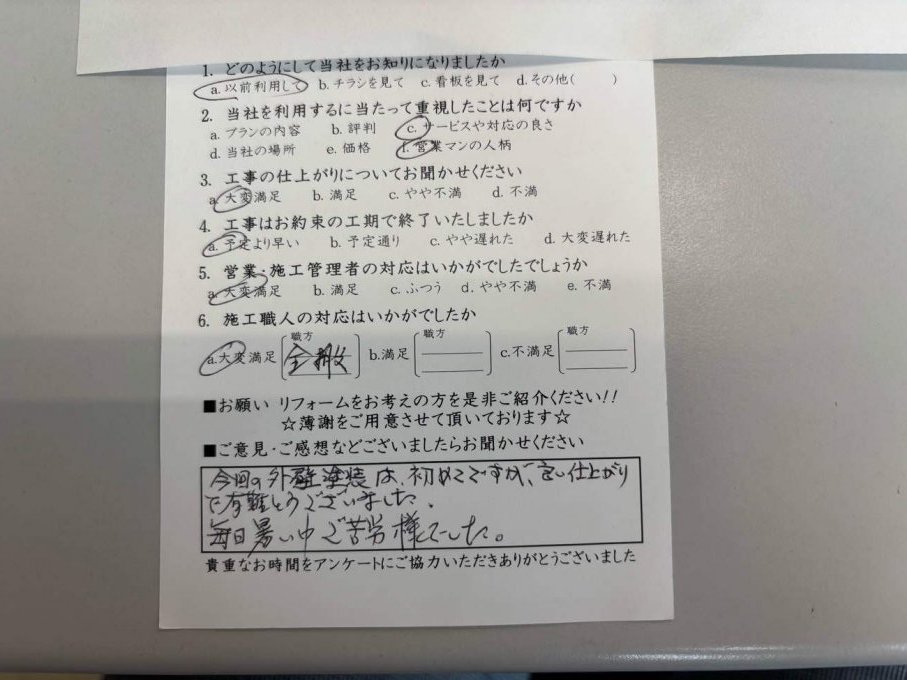 1. どのようにして当社をお知りになりましたか
a. 以前利用して b. チラシを見て c. 看板を見て d. その他( )
2. 当社を利用するに当たって重視したことは何ですか
a. プランの内容 b. 評判 c. サービスや対応の良さ
d. 当社の場所 e. 価格 f. 営業マンの人柄
3. 工事の仕上がりについてお聞かせください
a. 大変満足 b. 満足 c. やや不満 d. 不満
4. 工事はお約束の工期で終了いたしましたか
a. 予定より早い b. 予定通り c. やや遅れた d. 大変遅れた
5. 営業・施工管理者の対応はいかがでしたでしょうか
a. 大変満足 b. 満足 c. ふつう d. やや不満 e. 不満
6. 施工職人の対応はいかがでしたか
職方 職方 職方
a. 大変満足 全般 b. 満足 c. 不満足
■お願い リフォームをお考えの方を是非ご紹介ください!!
☆薄謝をご用意させて頂いております☆
■ご意見・ご感想などございましたらお聞かせください
今回の外壁塗装は、初めてですが、良い仕上がり
で有難とうございました。
毎日暑い中ご苦労様でした。
貴重なお時間をアンケートにご協力いただきありがとうございました